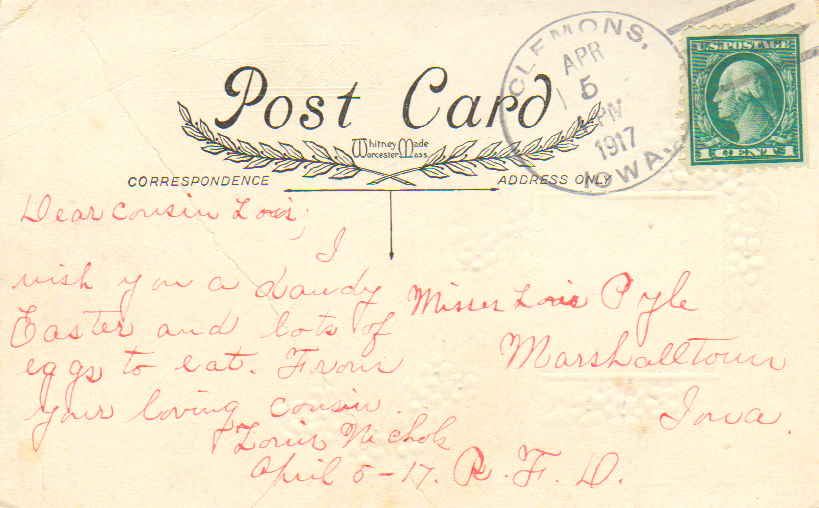 Post Card
Whitney Made
Worcester, Mass.
CORRESPONDENCE
ADDRESS ONLY
CLEMONS,
APR
5
PM
1917
IOWA.
U.S. POSTAGE
1 CENT 1
Dear Cousin Lois,
I
wish you a dandy
Easter and lots of
eggs to eat. From
your loving cousin.
Nichols
April 5-17.
Lois Pyle
Marshalltown
Iowa.
R.F.D.